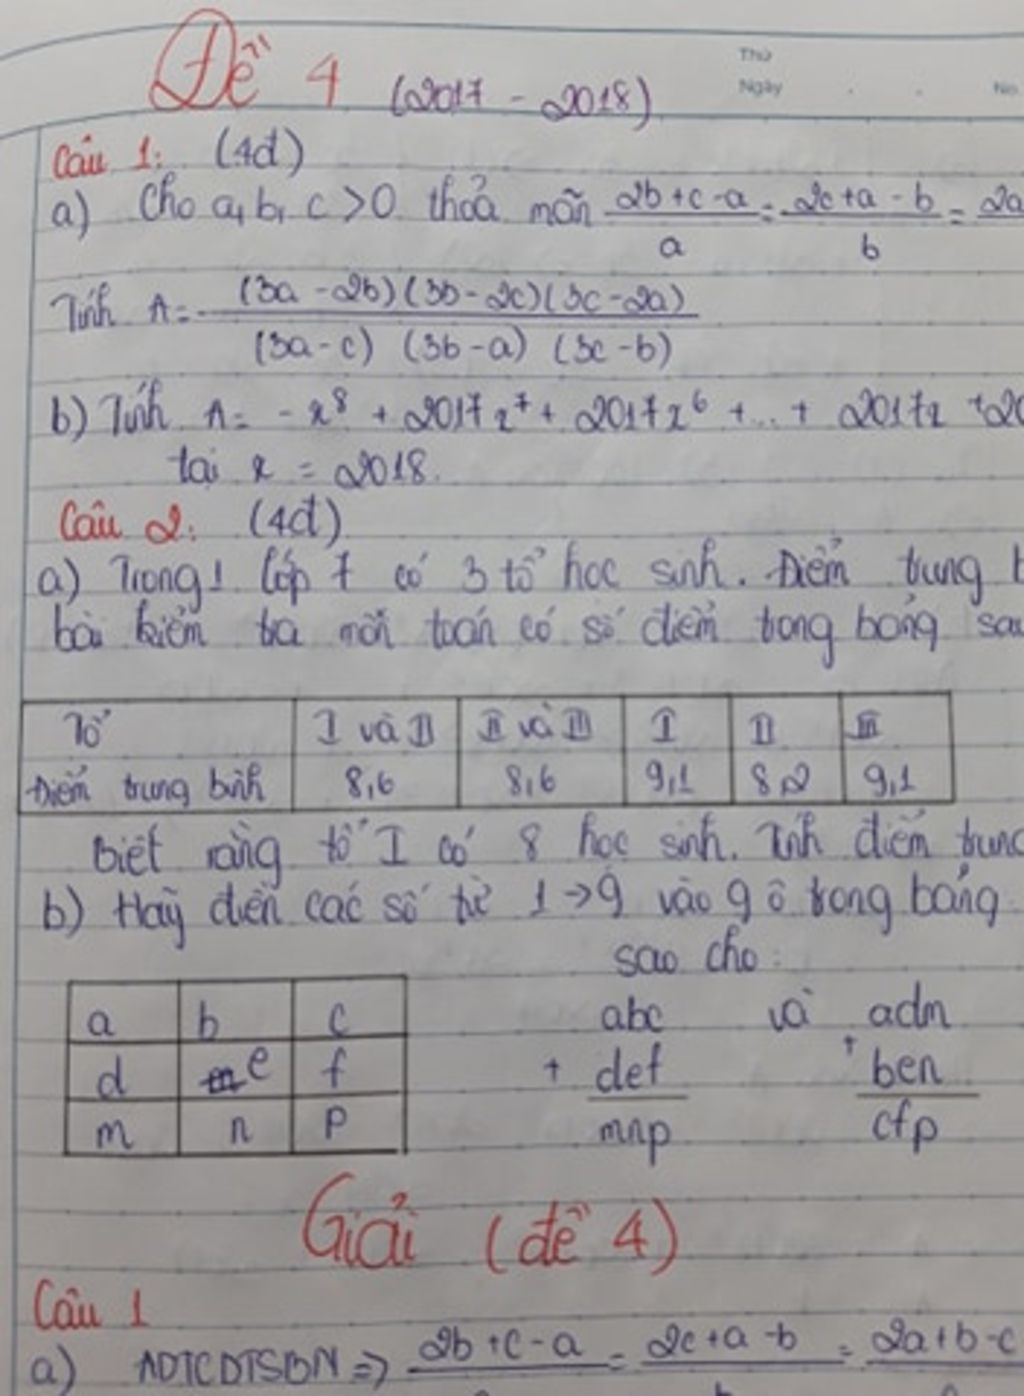 Đề 4 (2017 - 2018)
Thứ
Ngày
No
Câu 1: (4đ)
a) Cho a, b, c > 0 thoả mãn (2b+c-a)/a = (2c+a-b)/b = 2a
Tính A = (3a-2b)(3b-2c)(3c-2a) / (3a-c)(3b-a)(3c-b)
b) Tính A = -x⁸ + 2017x⁷ + 2017x⁶ + ... + 2017x + 20
tại x = 2018.
Câu 2: (4đ)
a) Trong 1 lớp 7 có 3 tổ học sinh. Điểm trung b
bài kiểm tra môn toán có số điểm trong bảng sau
Tổ I và II II và III I II III
Điểm trung bình 8,6 8,6 9,1 8,2 9,1
Biết rằng tổ I có 8 học sinh. Tính điểm trung
b) Hãy điền các số từ 1 → 9 vào 9 ô trong bảng
sao cho:
a b c abc và adm
d e f + def + ben
m n p mnp cfp
Giải (đề 4)
Câu 1
a) ADTCDTSBN => 2b+c-a = 2c+a-b = 2a+b-c